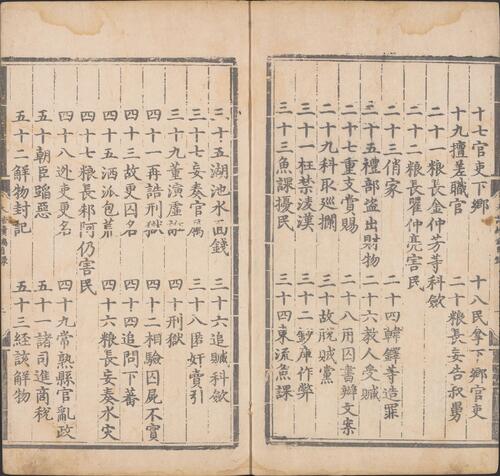 十七官吏下鄉　十八民拿下鄉官吏
十九擅差職官　二十粮長妄告叔舅
二十一粮長金仲芳等科斂
二十二粮長瞿仲亮害民
二十三俏家　二十四韓鐸等造罪
二十五禮部盜出財物　二十六教人受贓
二十七重支賞賜　二十八用囚書辦文案
二十九科取巡攔　三十故脫賊黨
三十一枉禁凌漢　三十二鈔庫作弊
三十三魚課擾民　三十四東流魚課
三十五湖池水面錢　三十六追贓科斂
三十七妄奏官屬　三十八匿奸賣引
三十九董演虛　四十刑獄
四十一再誥刑獄　四十二相驗囚屍不實
四十三故更囚名　四十四追問下蕃
四十五洒派包荒　四十六粮長妄奏水災
四十七粮長邾阿仍害民
四十八逃吏更名　四十九常熟縣官亂政
五十朝臣蹈惡　五十一諸司進商稅
五十二解物封記　五十三經該解物